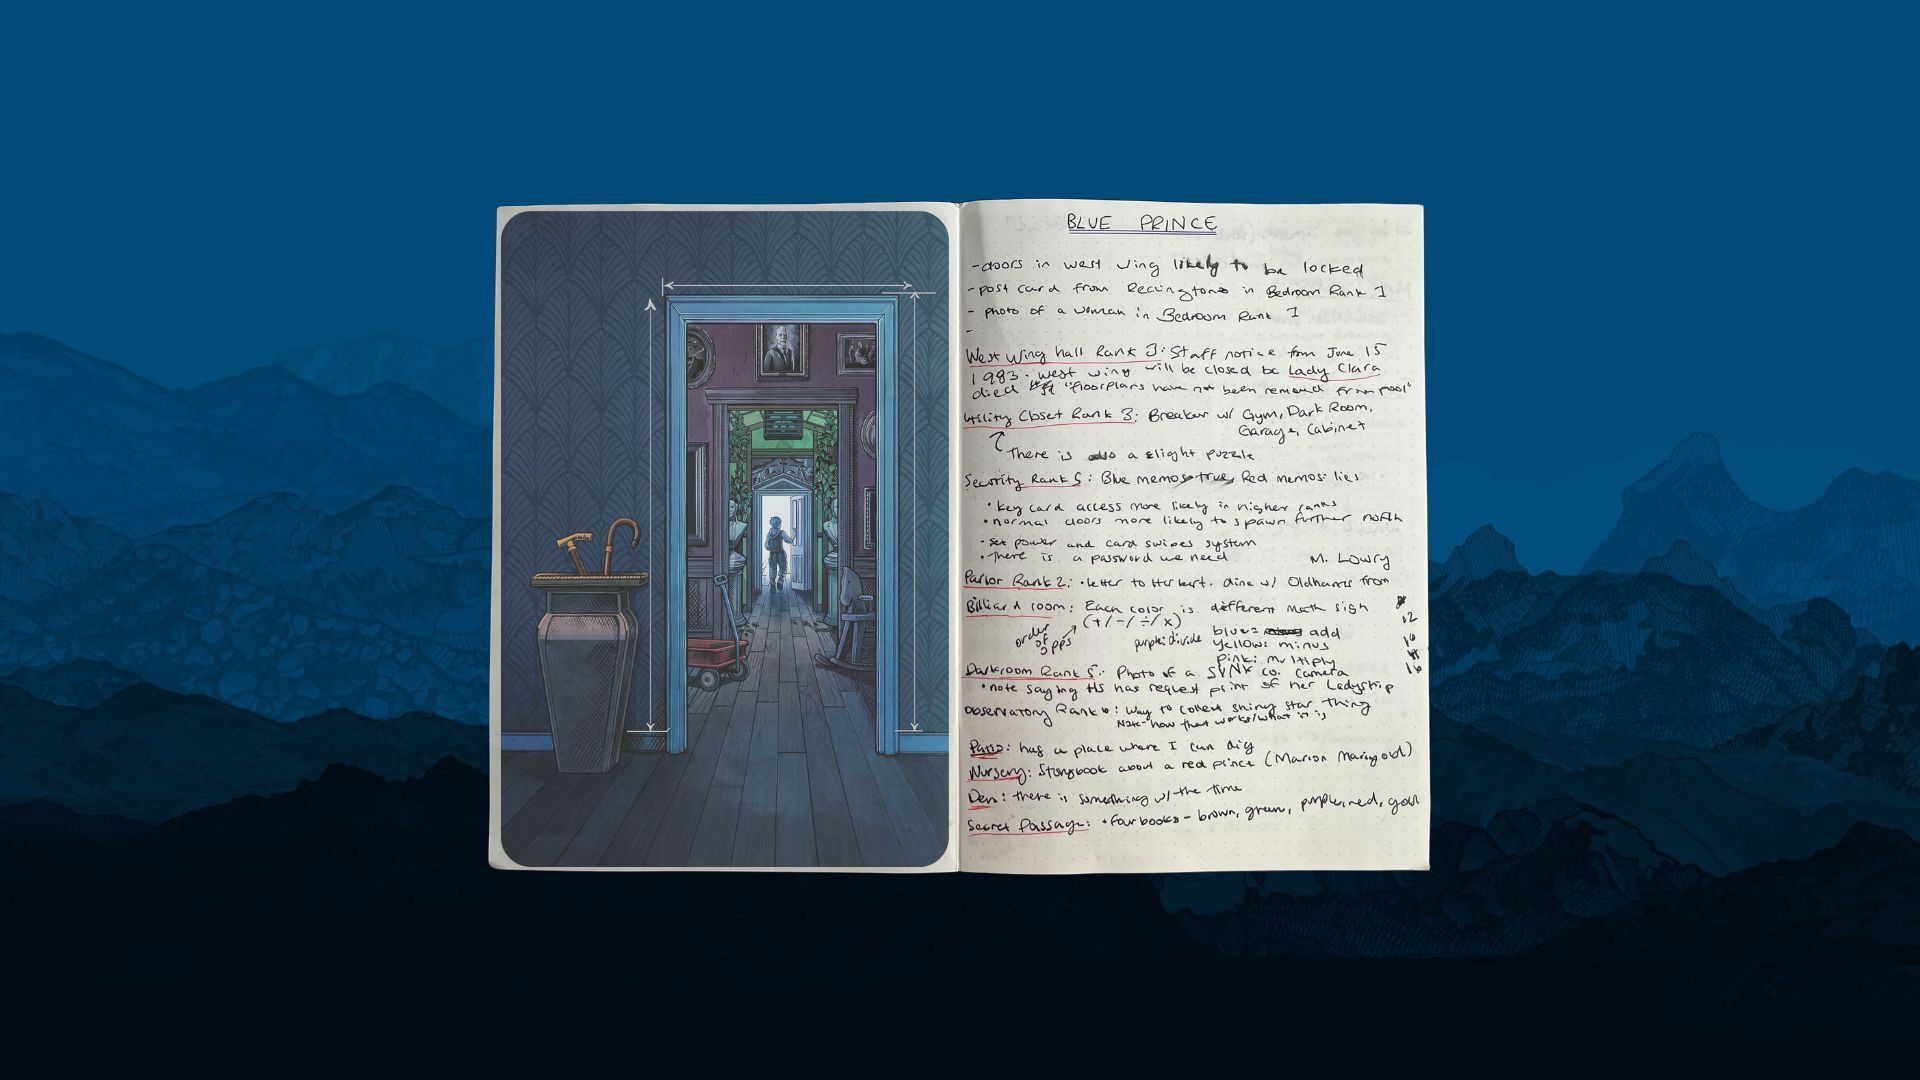 BLUE PRINCE
-doors in west wing likely to be locked
-post card from Reddington in Bedroom Rank 1
- photo of a woman in Bedroom Rank 1
-
West Wing hall Rank 3: Staff notice from June 15
1983. west wing will be closed bc Lady Clara
died "floorplans have not been removed from pool"
Utility Closet Rank 3: Breaker w/ Gym, Dark Room,
Garage, Cabinet
There is also a slight puzzle
Security Rank 5: Blue memos true, Red memos: lies
• key card access more likely in higher ranks
• normal doors more likely to spawn further north
• set power and card swipes system
• There is a password we need M. Lowry
Parlor Rank 2: • letter to Herbert. dine w/ Oldhams from
Billiard room: Each color is different math sign
(+/-/÷/x) 12
order of opps purple: divide blue= add
yellow: minus
pink: multiply 16
Darkroom Rank 5: Photo of a SYNK co. camera
• note saying HS has request print of her Ladyship
Observatory Rank 6: way to collect shiny star thing
Note- how that works/what it is
Patio: has a place where I can dig
Nursery: Storybook about a red prince (Marion Marigold)
Den: there is something w/ the time
Secret Passage: • four books - brown, green, purple, red, gold